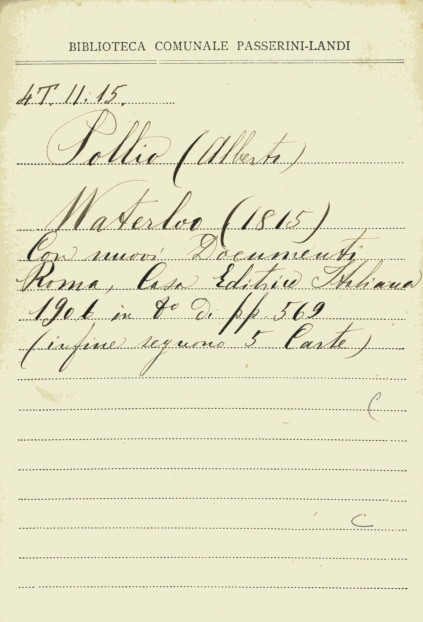 BIBLIOTECA COMUNALE PASSERINI-LANDI
4T. II. 15.
Pollio (Alberto)
Waterloo (1815)
Con nuovi Documenti
Roma, Casa Editrice Italiana
1906 in 8º di pp 569
(infine seguono 5 Carte)
C
C